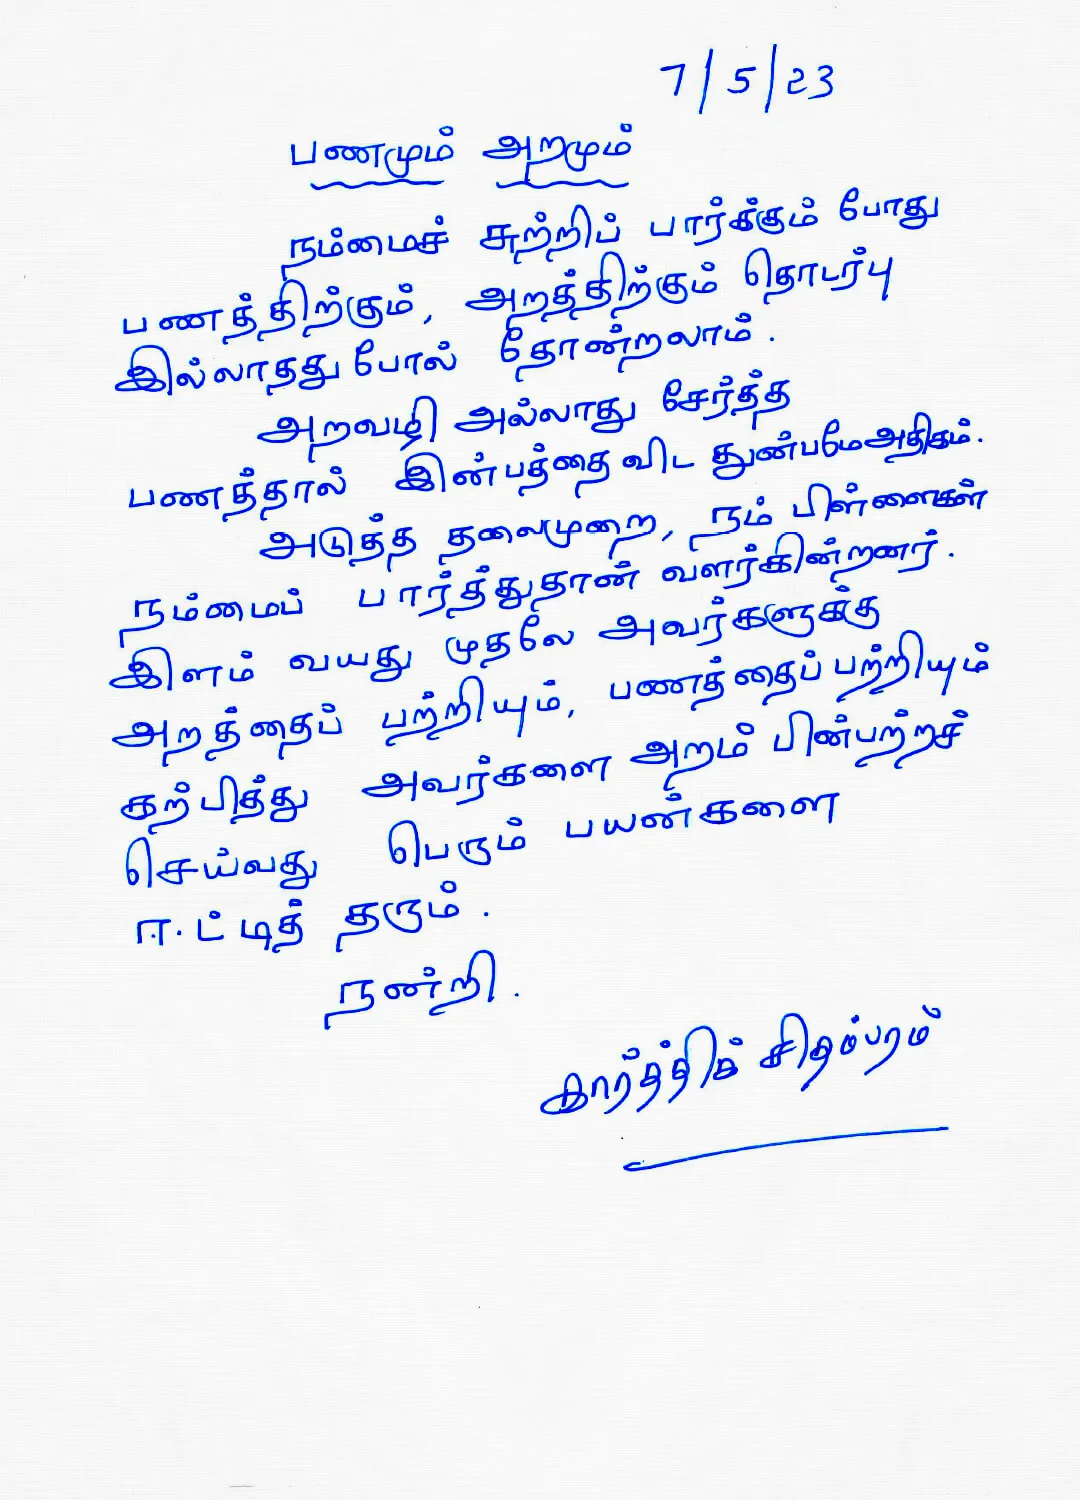 7/5/23
பணமும் அறமும்
நம்மைச் சுற்றிப் பார்க்கும் போது
பணத்திற்கும், அறத்திற்கும் தொடர்பு
இல்லாதது போல் தோன்றலாம்.
அறவழி அல்லாது சேர்த்த
பணத்தால் இன்பத்தை விட துன்பமே அதிகம்.
அடுத்த தலைமுறை, நம் பிள்ளைகள்
நம்மைப் பார்த்துதான் வளர்கின்றனர்.
இளம் வயது முதலே அவர்களுக்கு
அறத்தைப் பற்றியும், பணத்தைப் பற்றியும்
கற்பித்து அவர்களை அறம் பின்பற்றச்
செய்வது பெரும் பயன்களை
ஈட்டித் தரும்.
நன்றி.
கார்த்திக் சிதம்பரம்